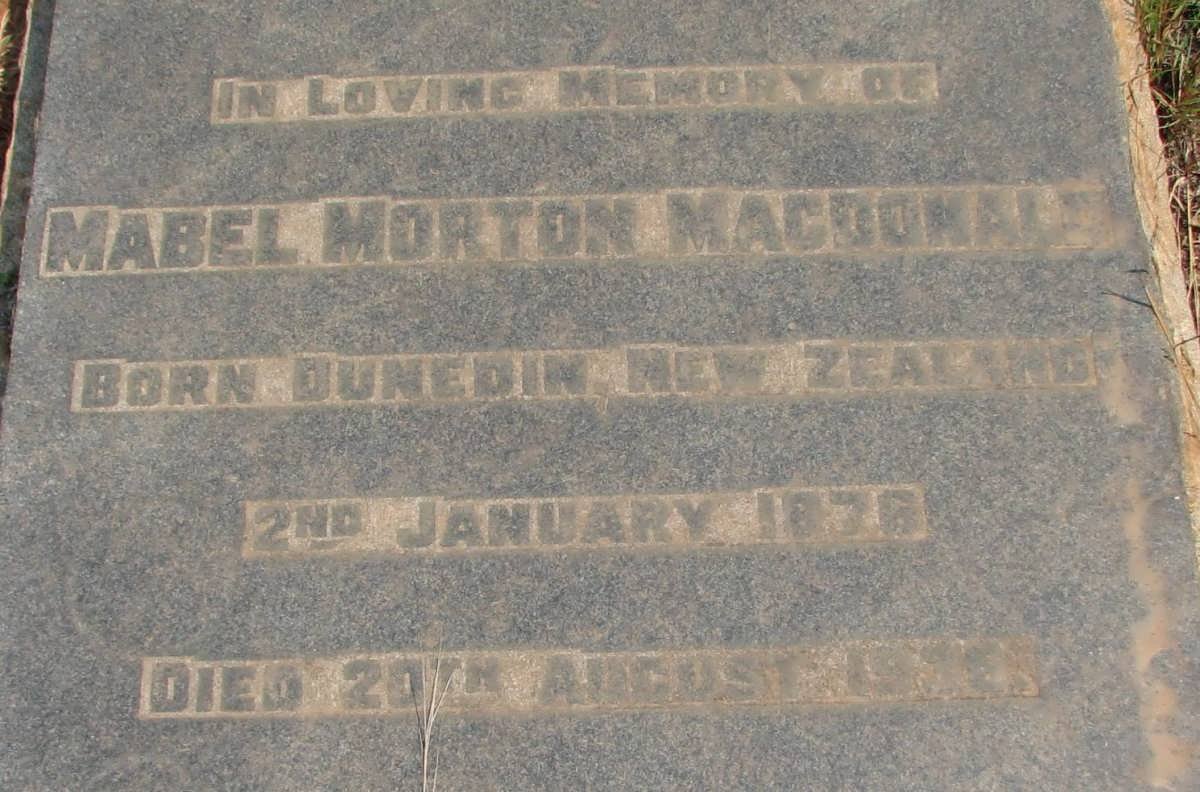 IN LOVING MEMORY OF
MABEL MORTON MACDONALD
BORN DUNEDIN, NEW ZEALAND
2ND JANUARY 1876
DIED 20TH AUGUST